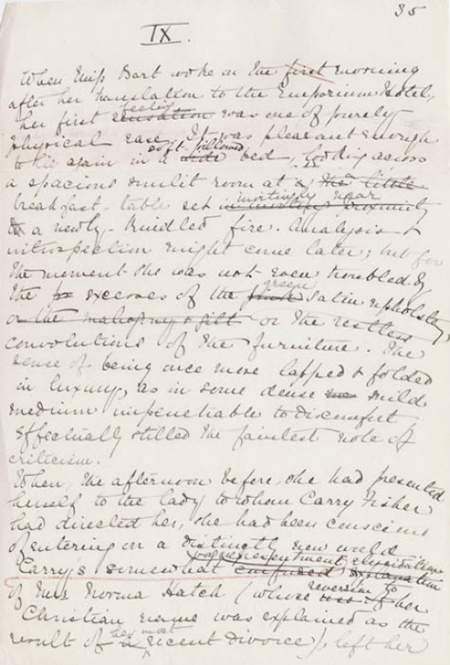 35
IX.
When Miss Bart woke on the first morning
after her translation to the Emporium Hotel,
feeling
her first sensation was one of purely
physical ease. It was pleasant enough
soft-pillowed
to lie again in a wide bed, looking across
a spacious sunlit room at a the little
invitingly near
breakfast-table set in
to a newly-kindled fire. Analysis &
introspection might come later; but for
the moment she was not even troubled by
green
the excesses of the satin upholstery
or the mahogany & gilt or the restless
convolutions of the furniture. The
sense of being once more lapped & folded
in luxury, as in some dense mild
medium impenetrable to discomfort
effectually stilled the faintest note of
criticism.
When, the afternoon before, she had presented
herself to the lady to whom Carry Fisher
had directed her, she had been conscious
of entering on a distinctly new world
Carry's somewhat confused explanation
of Mrs Norma Hatch (whose
reversion to
her
Christian name was explained as the
her most
result of recent divorce), left her